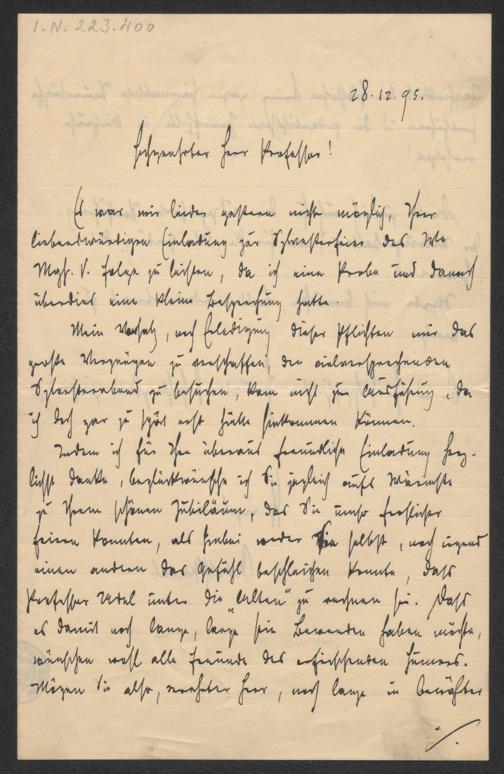 I.N. 223.400
28.12.95.
Hochgeehrter Herr Professor!
Es war mir leider gestern nicht möglich, Ihrer
liebenswürdigen Einladung zur Sylvesterfeier des Wr
Mgsr. V. Folge zu leisten, da ich eine Probe und danach
überdies eine kleine Besprechung hatte.
Mein Vorsatz, nach Erledigung dieser Pflichten mir das
große Vergnügen zu verschaffen, den vielversprechenden
Sylvesterabend zu besuchen, kam nicht zur Ausführung, da
ich doch gar zu spät erst hätte hinkommen können.
Indem ich für Ihre überaus freundliche Einladung herz-
lichst danke, beglückwünsche ich Sie zugleich aufs Wärmste
zu Ihrem schönen Jubiläum, das Sie umso festlicher
feiern konnten, als hiebei weder Sie selbst, noch irgend
einen andern das Gefühl beschleichen konnte, dass
Professor Udel unter die "Alten" zu rechnen sei. Dass
es damit noch lange, lange sein Bewenden haben möchte,
wünschen wohl alle Freunde des erfrischenden Humors.
Mögen Sie also, verehrter Herr, noch lange in bewährter